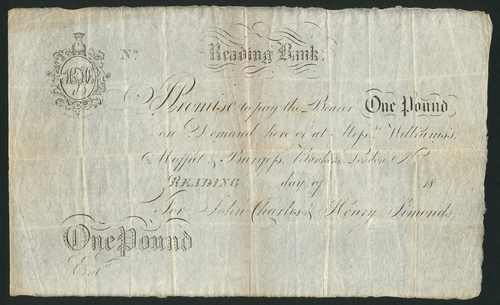 No. Reading Bank.
I Promise to pay the Bearer One Pound
on Demand here or at Messrs. Williams's
Moffat & Burgess, Bankers, London No.
READING day of 18
For John Charles & Henry Simonds.
One Pound
Entd.